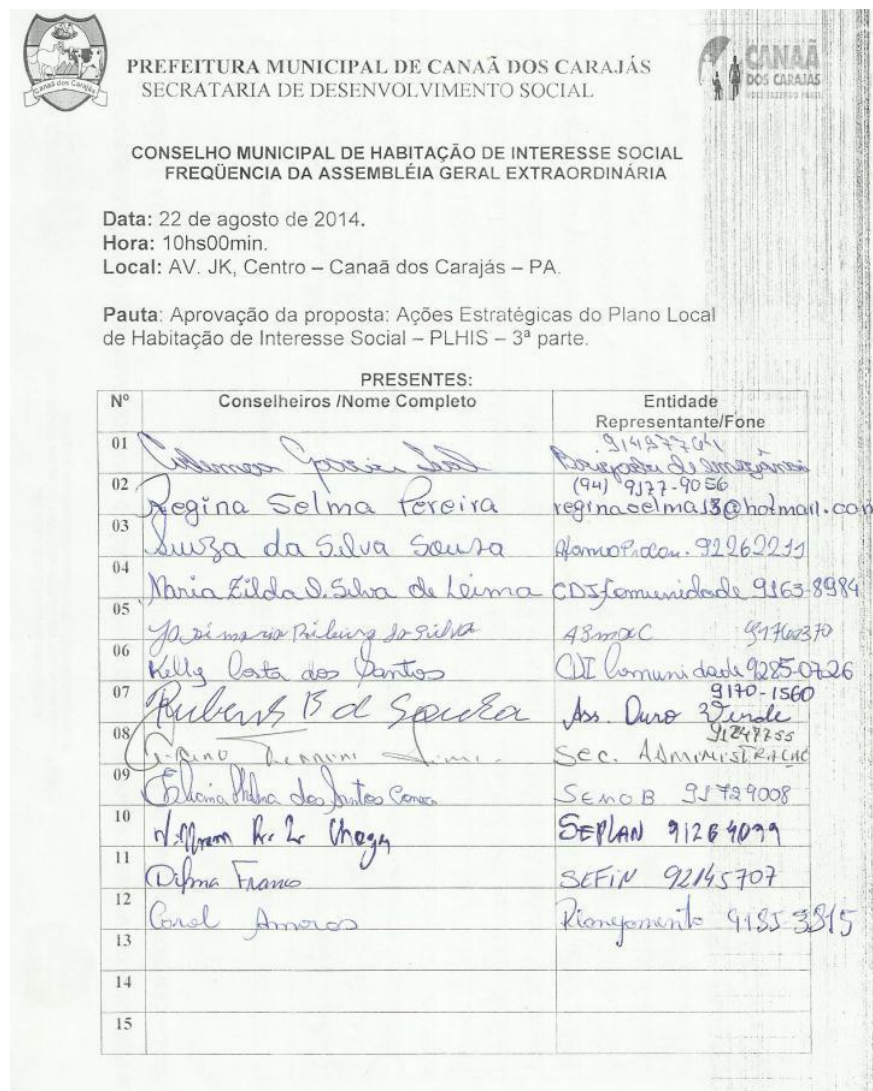 Canaã dos Carajás
CANAÃ
DOS CARAJÁS
PREFEITURA MUNICIPAL DE CANAÃ DOS CARAJÁS
SECRATARIA DE DESENVOLVIMENTO SOCIAL
CONSELHO MUNICIPAL DE HABITAÇÃO DE INTERESSE SOCIAL
FREQÜENCIA DA ASSEMBLÉIA GERAL EXTRAORDINÁRIA
Data: 22 de agosto de 2014.
Hora: 10hs00min.
Local: AV. JK, Centro – Canaã dos Carajás – PA.
Pauta: Aprovação da proposta: Ações Estratégicas do Plano Local
de Habitação de Interesse Social – PLHIS – 3ª parte.
PRESENTES:
Nº Conselheiros /Nome Completo Entidade
Representante/Fone
01
02 Regina Selma Pereira (94) 9177-9056
reginaselma13@hotmail.com
03 da Silva Sousa
04 Maria Zilda D. Silva de CDI Comunidade 9163-8984
05 Ribeiro da Silva
06 Kelly Costa dos Santos CDI Comunidade 9285-0726
07 Rubens B d Souza Ass. Ouro Verde 9170-1560
08 Sec. ADMINISTRAÇÃO 91247755
09 dos Santos SEMOB 91729008
10 SEPLAN 91264099
11 Dilma Franco SEFIN 92145707
12 Carol Amoras Planejamento
13
14
15